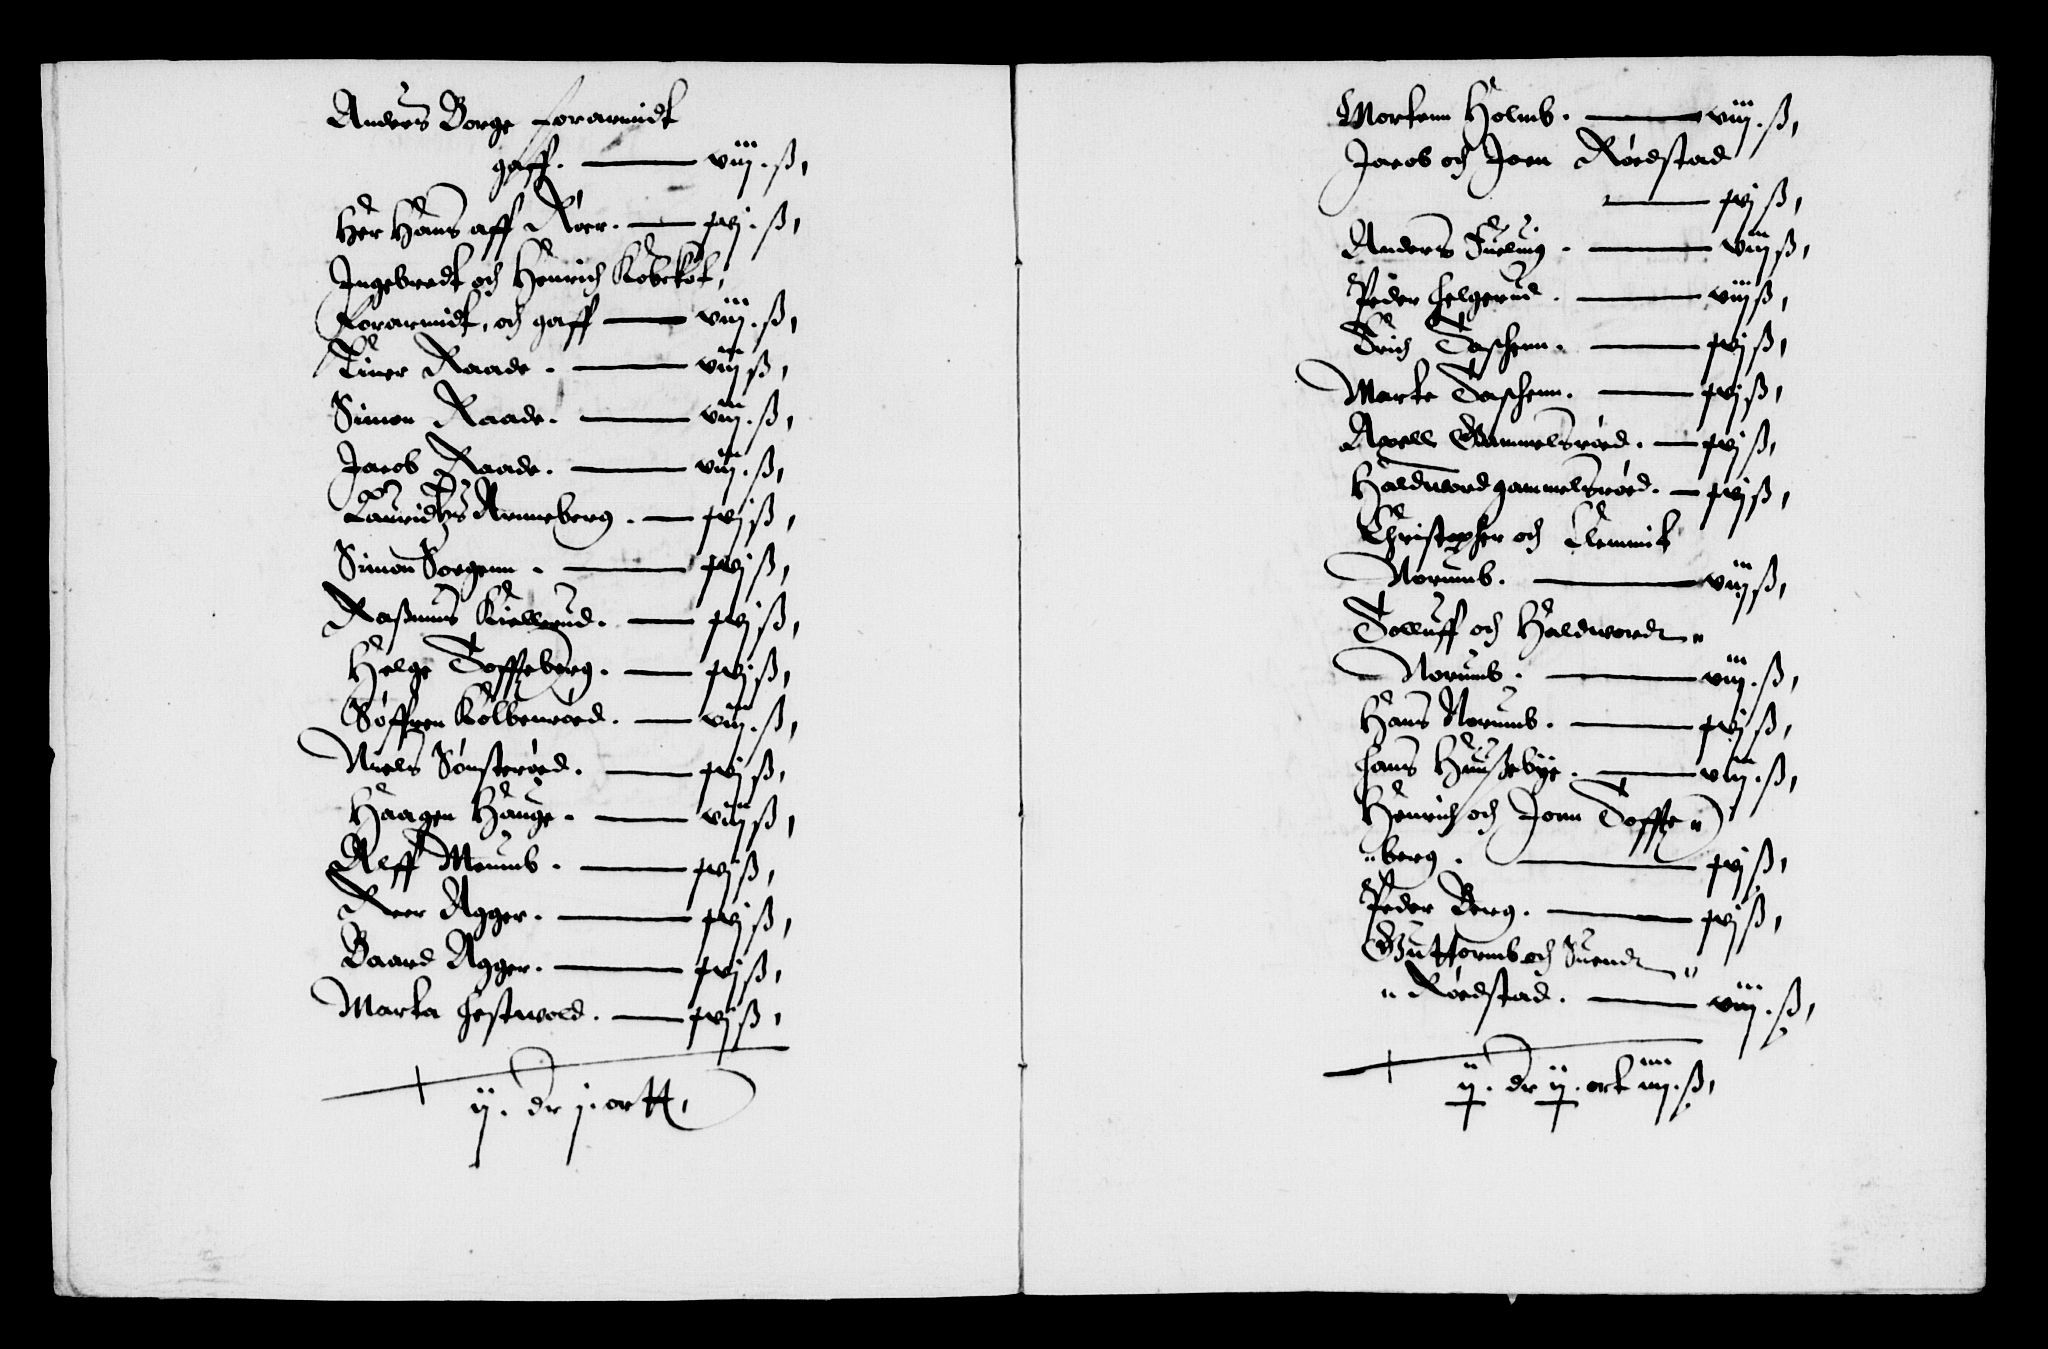 Anders Borge forarmidt
gaff. — viij. ß,
Her Hans aff Roer. — xvj. ß,
Ingebredt och Henrich Kobckot,
forarmidt, och gaff — viij. ß,
Einer Raade. — viij ß,
Simon Raade. — viij. ß,
Jacob Raade. — viij. ß,
Lauridtzs Arneberg. — xvj ß,
Simon Sorgenn. — xvj ß,
Rasmus Kiellerud. — xvj ß,
Helge Toffteberg. — xvj ß,
Søffren Kolbenroed. — viij. ß,
Niels Sønsterøed. — xvj ß,
Haagen Hauge. — viij ß,
Alff Meumb. — xvj ß,
Roer Agger. — xvj ß,
Baard Agger. — xvj ß,
Marta Hestwold. — xvj ß,
ij. dr j. ortt,
Mortenn Holmb. — viij. ß,
Jacob och Joen Røedstad
— xvj ß,
Anders Fuelling. — viij ß,
Peder Helgerud. — viij ß,
Erich Taschenn. — xvj ß,
Marte Taschenn. — xvj ß,
Axell Gammelsrøed. — xvj ß,
Haldword gammelsrøed. — xvj ß,
Christopher och Clemmit
Norumb. — viij ß,
Tolluff och Haldwordt
Norumb. — viij. ß,
Hans Norumb. — xvj ß,
Hans Hußebye. — viij. ß,
Henrich och Jonn Toffte
berg. — xvj ß,
Peder Berg. — xvj ß,
Guttormb och Suendt
Røedstad. — viij. ß,
ij. dr ij. ort iiij. ß,